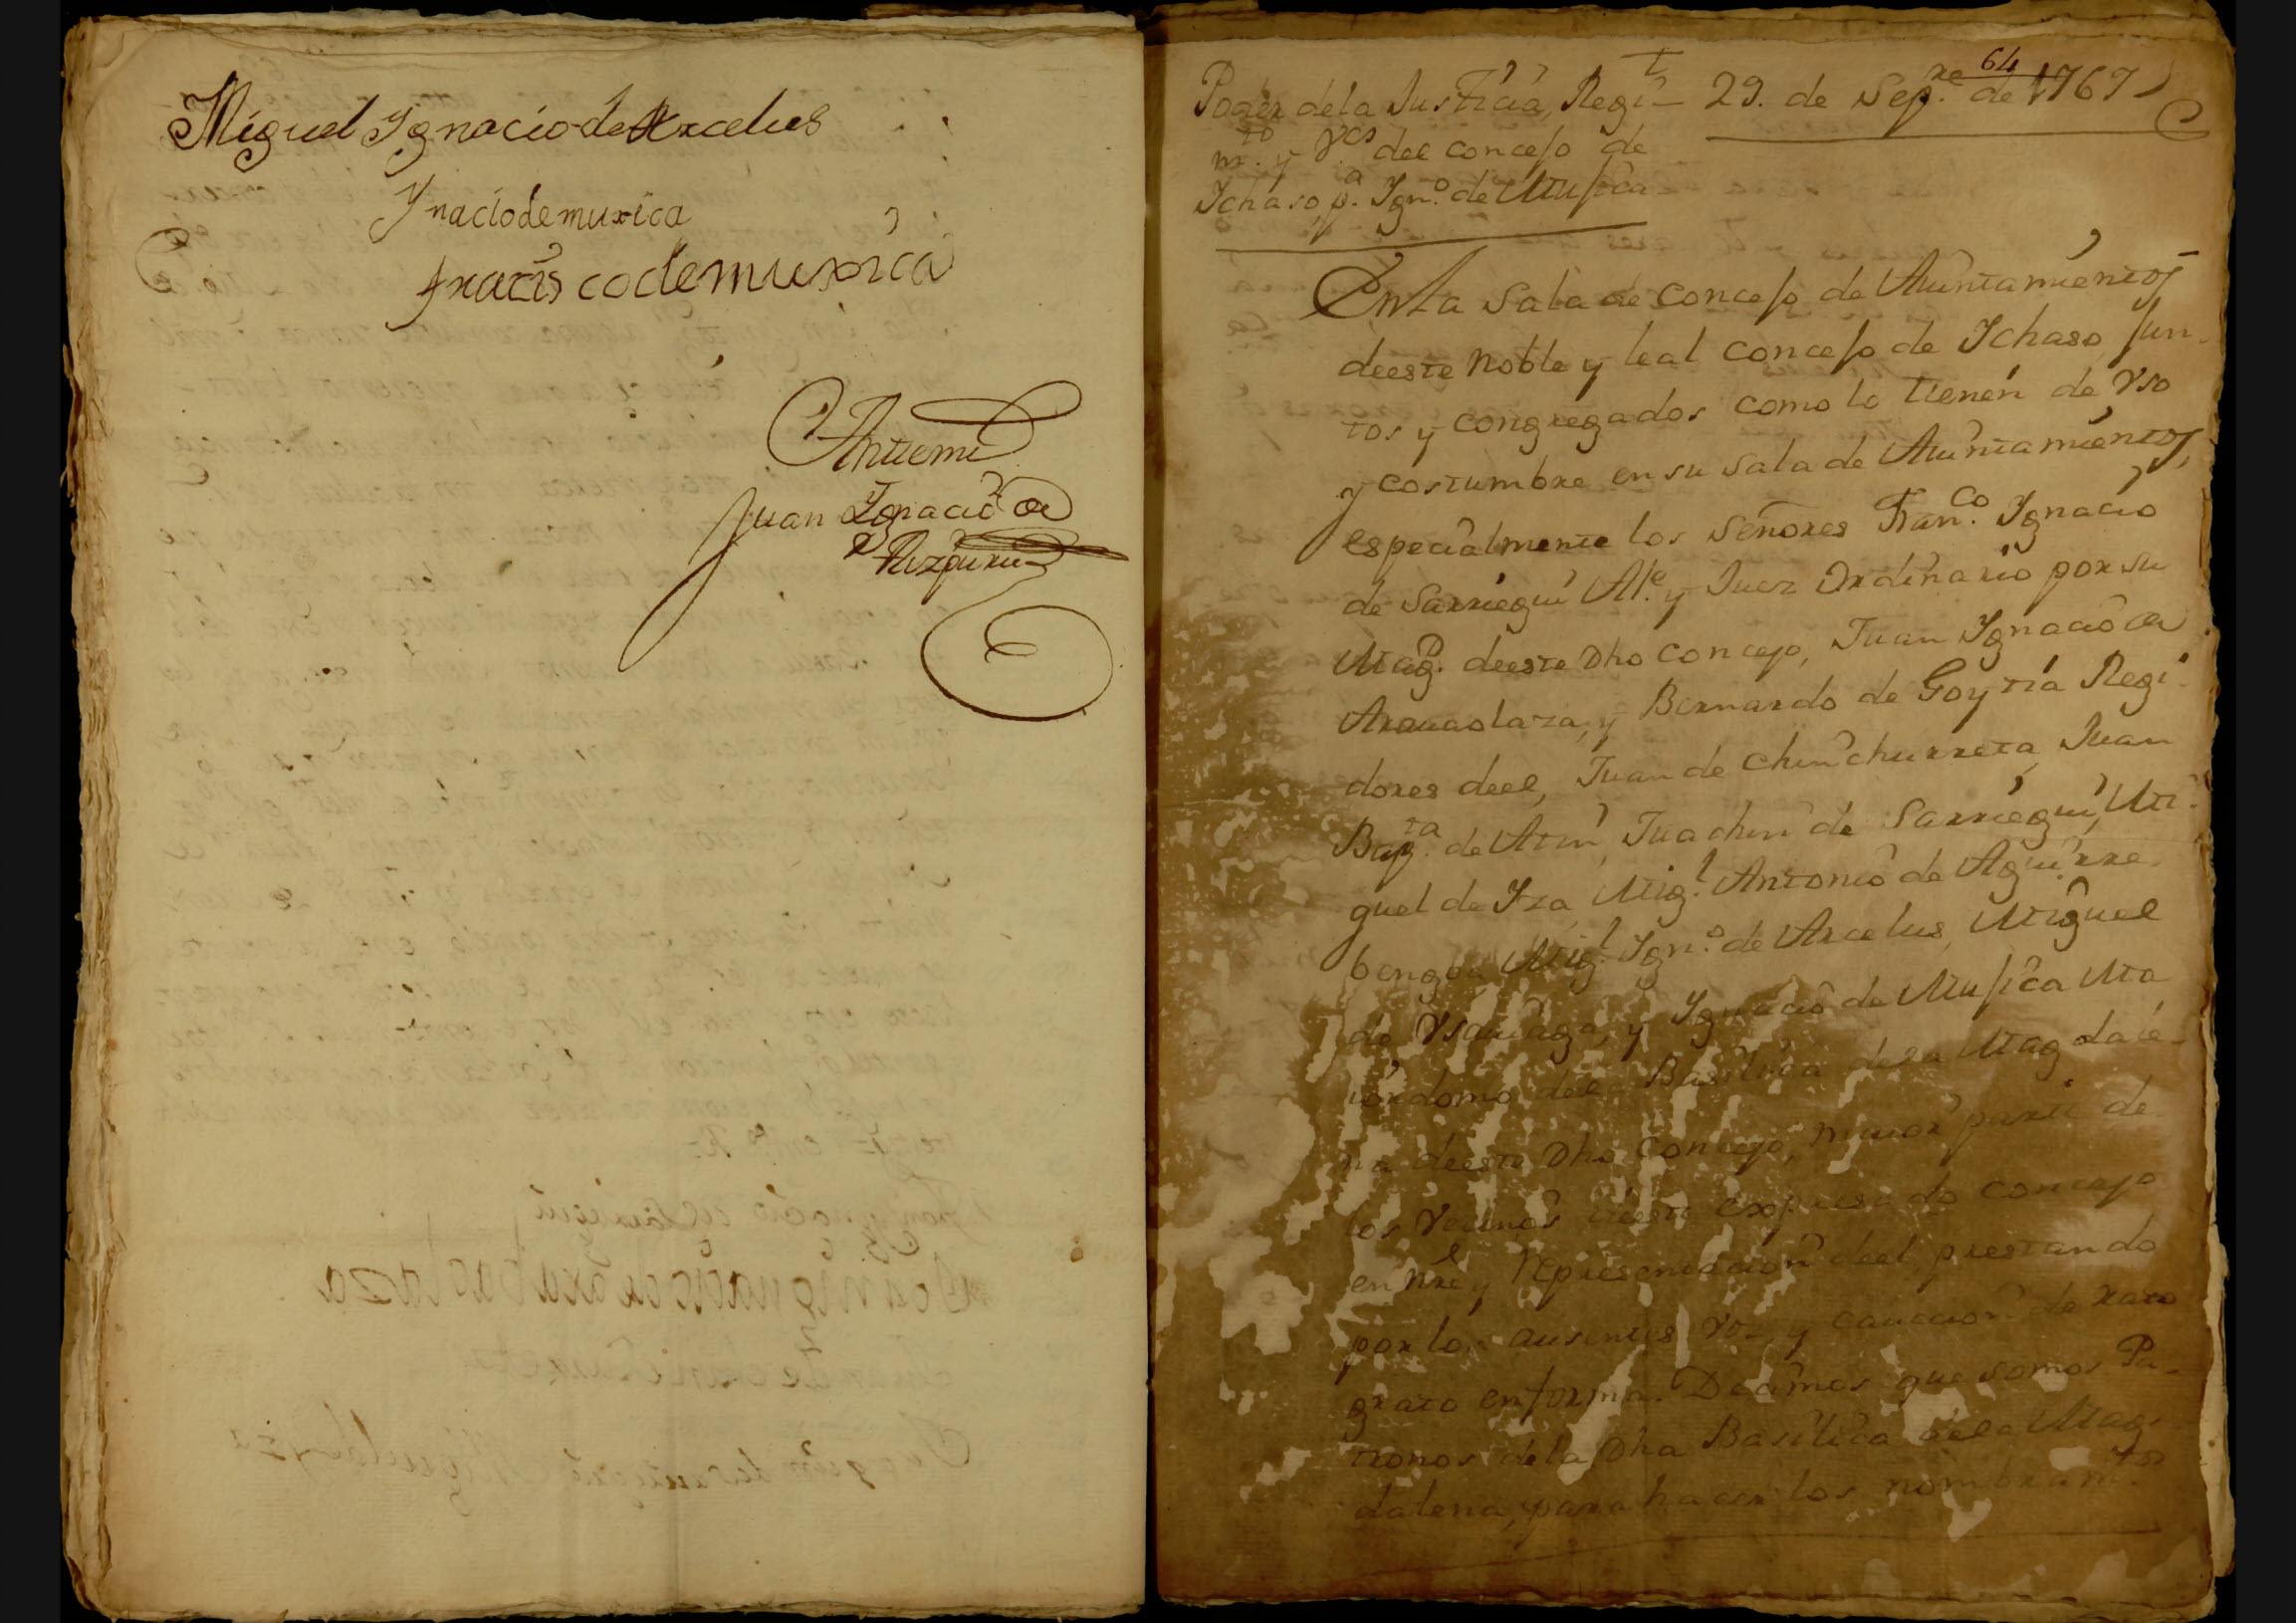 Miguel Ygnacio de Arcelus
Ynacio de muxica
franciscodemuxica
Antemi
Juan Ignacio de
Aizpuru
64
Poder dela Justicia, Regi- 29. de Sepre. de 1767
mto. y Vos del concejo de
Ichaso, pa. Igno. de Musica
En La Sala de concejo de Aiuntamientos
deeste Noble y leal concejo de Ichaso, Jun-
tos y congregados como lo tienen de Vso
y costumbre en su Sala de Aiuntamientos,
especialmente los Señores Franco. Ignacio
de Sarriegui Ale. y Juez Ordinario por su
Magd. deeste Dho concejo, Juan Ignacio de
Araucolaza, y Bernardo de Goytia Regi-
dores deel, Juan de Chinchurreta, Juan
Bapta. de Atin, Juachin de Sarriegui, Mi-
guel de Yza, Migl. Antonio de Aguirre
bengoa Migl. Igno. de Arcelus, Miguel
de Vsauiaga, y Ygnacio de Musica Ma
iordomo dela Basilica dela Magdale-
na deeste Dho Concejo, maior parte de
los Vecinos deeste expresado concejo
en Nre. y Representacion deel, prestando
por los ausentes Voz, y caucion de rato
grato en forma. Decimos que somos Pa-
tronos dela Dha Basilica dela Mag-
dalena, y para hacer los nombramtos.